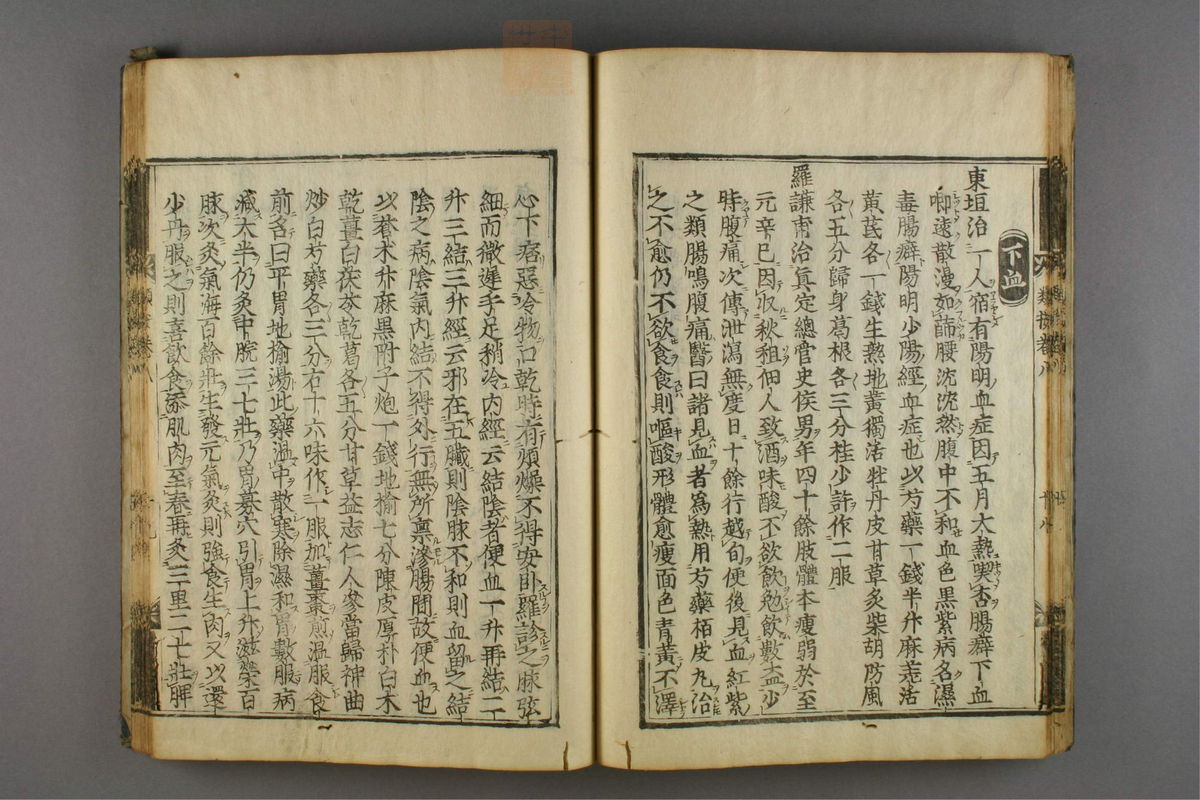 下血
東垣治一人宿有陽明血症因五月大熱喫杏腸癖下血
唧遠散漫如篩腰沈沈然腹中不和血色黒紫病名濕
毒腸癖陽明少陽經血症也以芍藥一錢半升麻羌活
黄芪各一錢生熟地黄獨活牡丹皮甘草炙柴胡防風
各五分歸身葛根各三分桂少許作二服
羅謙甫治眞定總管史侯男年四十餘肢體本瘦弱於至
元辛巳因收秋租佃人致酒味酸不欲飲勉飲數盃少
時腹痛次傳泄瀉無度日十餘行越旬便後見血紅紫
之類腸鳴腹痛醫曰諸見血者爲熱用芍藥栢皮丸治
之不愈仍不欲食食則嘔酸形體愈瘦面色青黄不澤
心下痞惡冷物口乾時有煩燥不得安卧羅診之脉弦
細而微遲手足稍冷内經云結陰者便血一升再結二
升三結三升經云邪在五臟則陰脉不和則血留之結
陰之病陰氣内結不得外行無所稟滲腸間故便血也
以蒼朮升麻黒附子炮一錢地榆七分陳皮厚朴白朮
乾薑白茯苓乾葛各五分甘草益志仁人參當歸神曲
炒白芍藥各三分右十六味作一服加薑棗煎温服食
前名曰平胃地榆湯此藥温中散寒除濕和胃數服病
減大半仍灸中脘三七壯乃胃募穴引胃上升滋榮百
脉次灸氣海百餘壯生發元氣灸則強食生肉又以還
少丹服之則喜飲食添肌肉至春再灸三里二七壯脾